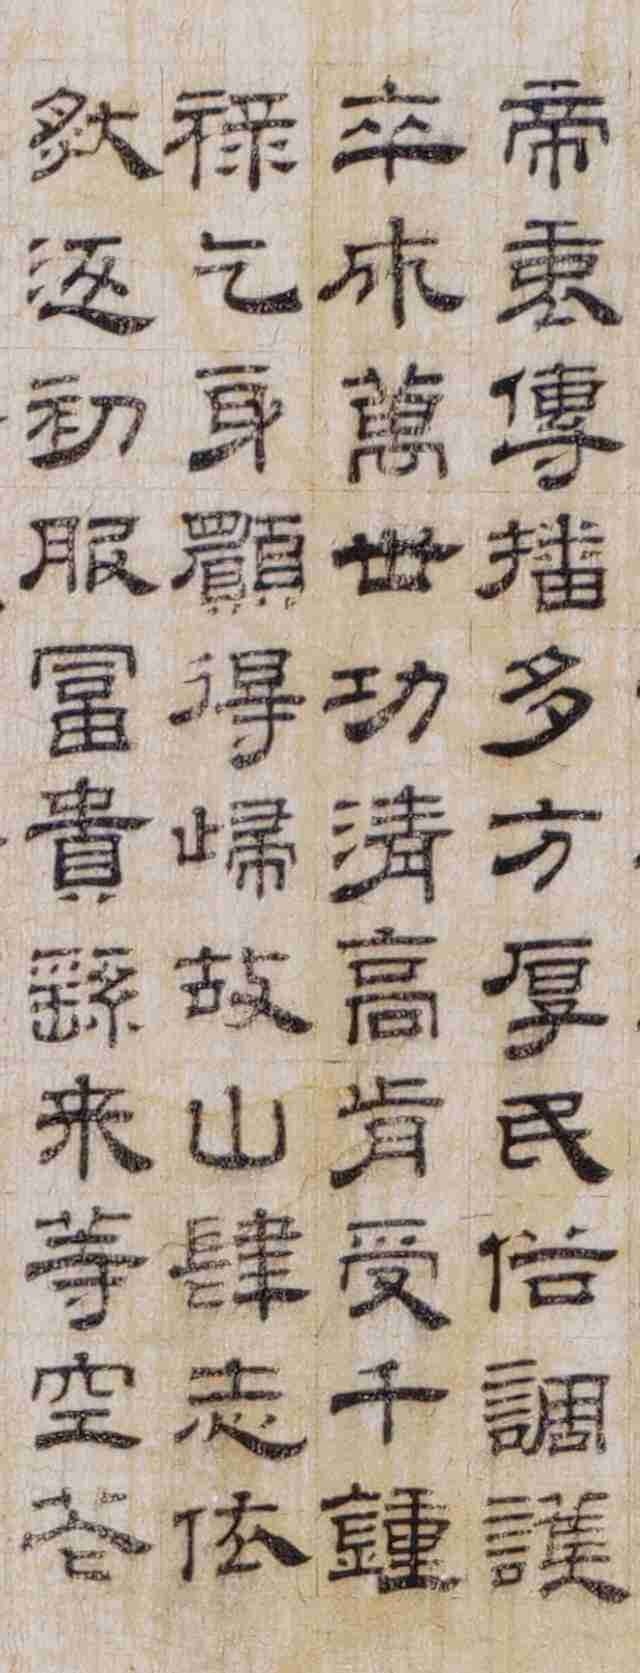 帝傳播多方厚民俗調護
卒作萬世功清高肯受千鍾
祿乞身願得歸故山肆志依
然返初服富貴繇来等空花